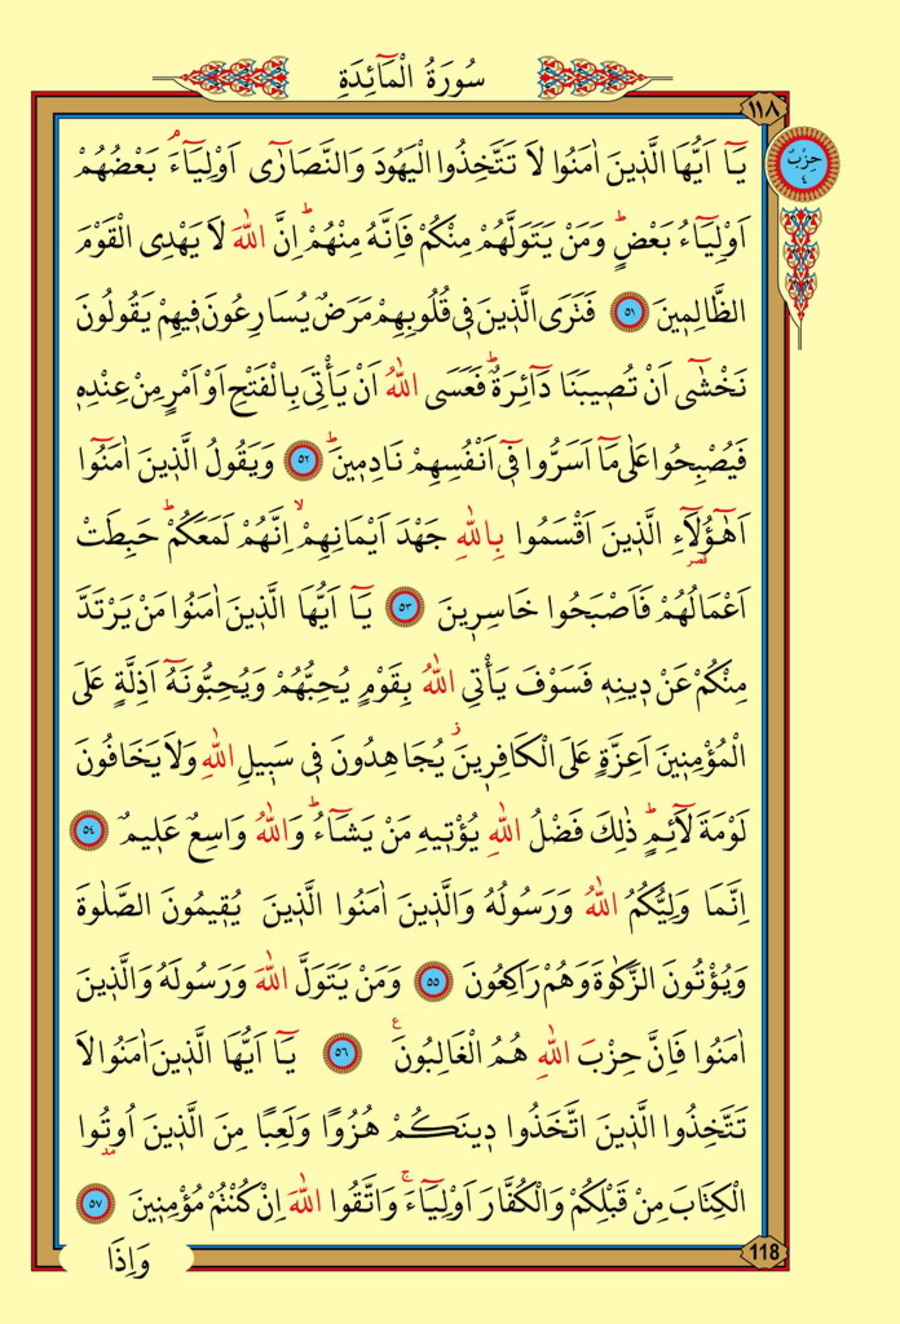 سُورَةُ الْمَآئِدَةِ
١١٨
حِزْبٌ
٤
يَآ اَيُّهَا الَّذ۪ينَ اٰمَنُوا لَا تَتَّخِذُوا الْيَهُودَ وَالنَّصَارٰٓى اَوْلِيَآءَۢ بَعْضُهُمْ
اَوْلِيَآءُ بَعْضٍۜ وَمَنْ يَتَوَلَّهُمْ مِنْكُمْ فَاِنَّهُ مِنْهُمْۜ اِنَّ اللّٰهَ لَا يَهْدِي الْقَوْمَ
الظَّالِم۪ينَ ٥١ فَتَرَى الَّذ۪ينَ ف۪ي قُلُوبِهِمْ مَرَضٌ يُسَارِعُونَ ف۪يهِمْ يَقُولُونَ
نَخْشٰٓى اَنْ تُص۪يبَنَا دَآئِرَةٌۜ فَعَسَى اللّٰهُ اَنْ يَأْتِيَ بِالْفَتْحِ اَوْ اَمْرٍ مِنْ عِنْدِه۪
فَيُصْبِحُوا عَلٰى مَآ اَسَرُّوا ف۪ٓي اَنْفُسِهِمْ نَادِم۪ينَۜ ٥٢ وَيَقُولُ الَّذ۪ينَ اٰمَنُٓوا
اَهٰٓؤُ۬لَآءِ الَّذ۪ينَ اَقْسَمُوا بِاللّٰهِ جَهْدَ اَيْمَانِهِمْۙ اِنَّهُمْ لَمَعَكُمْۜ حَبِطَتْ
قصر
اَعْمَالُهُمْ فَاَصْبَحُوا خَاسِر۪ينَ ٥٣ يَآ اَيُّهَا الَّذ۪ينَ اٰمَنُوا مَنْ يَرْتَدَّ
مِنْكُمْ عَنْ د۪ينِه۪ فَسَوْفَ يَأْتِي اللّٰهُ بِقَوْمٍ يُحِبُّهُمْ وَيُحِبُّونَهُٓ اَذِلَّةٍ عَلَى
الْمُؤْمِن۪ينَ اَعِزَّةٍ عَلَى الْكَافِر۪ينَۘ يُجَاهِدُونَ ف۪ي سَب۪يلِ اللّٰهِ وَلَا يَخَافُونَ
لَوْمَةَ لَآئِمٍۜ ذٰلِكَ فَضْلُ اللّٰهِ يُؤْت۪يهِ مَنْ يَشَآءُۜ وَاللّٰهُ وَاسِعٌ عَل۪يمٌ ٥٤
اِنَّمَا وَلِيُّكُمُ اللّٰهُ وَرَسُولُهُ وَالَّذ۪ينَ اٰمَنُوا الَّذ۪ينَ يُق۪يمُونَ الصَّلٰوةَ
وَيُؤْتُونَ الزَّكٰوةَ وَهُمْ رَاكِعُونَ ٥٥ وَمَنْ يَتَوَلَّ اللّٰهَ وَرَسُولَهُ وَالَّذ۪ينَ
اٰمَنُوا فَاِنَّ حِزْبَ اللّٰهِ هُمُ الْغَالِبُونَ ع ٥٦ يَآ اَيُّهَا الَّذ۪ينَ اٰمَنُوا لَا
تَتَّخِذُوا الَّذ۪ينَ اتَّخَذُوا د۪ينَكُمْ هُزُوًا وَلَعِبًا مِنَ الَّذ۪ينَ اُو۫تُوا
مد
الْكِتَابَ مِنْ قَبْلِكُمْ وَالْكُفَّارَ اَوْلِيَآءَۚ وَاتَّقُوا اللّٰهَ اِنْ كُنْتُمْ مُؤْمِن۪ينَ ٥٧
118
وَاِذَا